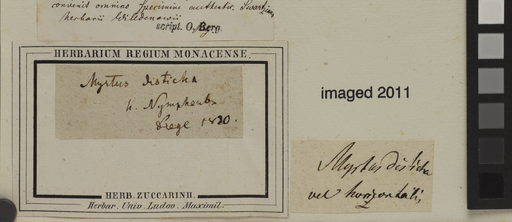 convenit omnino specimine authentic. Swartzian
herbarii Willdenowii
script. O. Berg.
HERBARIUM REGIUM MONACENSE.
Myrtus disticha
h. Nymphenb.
1820.
HERB. ZUCCARINII.
Herbar. Univ. Ludov. Maximil.
imaged 2011
Myrtus disticha
vel horizontalis